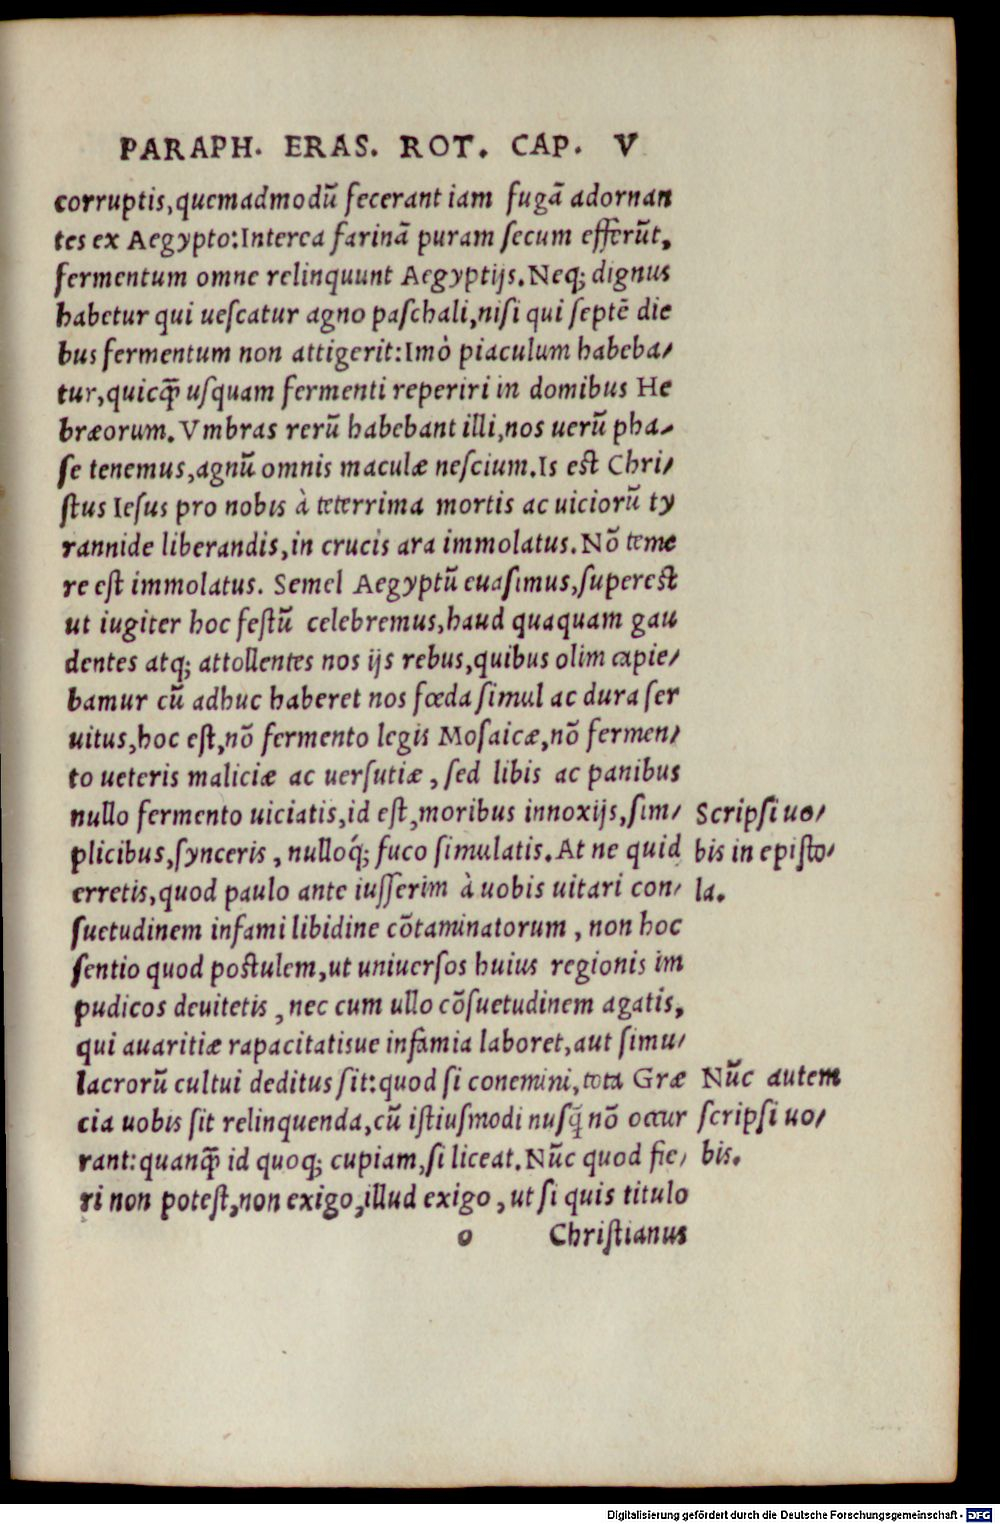 PARAPH. ERAS. ROT. CAP. V
corruptis,quemadmodũ fecerant iam fugã adornan
tes ex Aegypto:Interea farinã puram secum efferũt,
fermentum omne relinquunt Aegyptijs.Neq; dignus
habetur qui uescatur agno paschali,nisi qui septẽ die
bus fermentum non attigerit:Imò piaculum habeba/
tur,quicq̃ usquam fermenti reperiri in domibus He
bræorum. Vmbras rerũ habebant illi,nos uerũ pha/
se tenemus,agnũ omnis maculæ nescium.Is est Chri/
stus Iesus pro nobis à teterrima mortis ac uiciorũ ty
rannide liberandis,in crucis ara immolatus. Nõ teme
re est immolatus. Semel Aegyptũ euasimus,superest
ut iugiter hoc festũ celebremus,haud quaquam gau
dentes atq; attollentes nos ijs rebus,quibus olim capie/
bamur cũ adhuc haberet nos fœda simul ac dura ser
uitus,hoc est,nõ fermento legis Mosaicæ,nõ fermen/
to ueteris maliciæ ac uersutiæ, sed libis ac panibus
nullo fermento uiciatis,id est,moribus innoxijs,sim/
plicibus,synceris, nulloq́; fuco simulatis. At ne quid
erretis,quod paulo ante iusserim à uobis uitari con/
suetudinem infami libidine cõtaminatorum, non hoc
sentio quod postulem,ut uniuersos huius regionis im
pudicos deuitetis, nec cum ullo cõsuetudinem agatis,
qui auaritiæ rapacitatisue infamia laboret,aut simu/
lacrorũ cultui deditus sit:quod si conemini,tota Græ
cia uobis sit relinquenda,cũ istiusmodi nusq̃ nõ occur
rant:quanq̃ id quoq; cupiam,si liceat. Nũc quod fie/
ri non potest,non exigo,illud exigo, ut si quis titulo
o Christianus
Scripsi uo/
bis in episto/
la.
Nũc autem
scripsi uo/
bis.
Digitalisierung gefördert durch die Deutsche Forschungsgemeinschaft - DFG